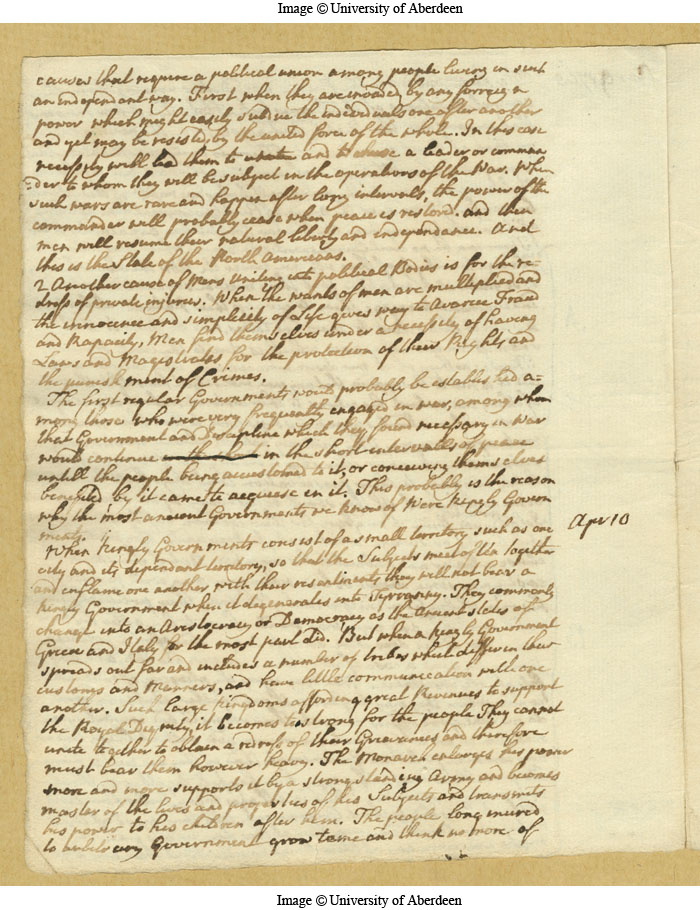 Image © University of Aberdeen
causes that require a political union among people living in such
an independant way. First when they are invaded by any forreign
power which might easily subdue the individuals one after another
and yet may be resisted by the united force of the whole. In this case
necessity will lead them to unite and to chuse a leader or comman
der to whom they will be subject in the operations of the War. When
such wars are rare and happen after long intervals, the power of the
commander will probably cease when peace is restord. and then
men will resume their natural liberty and independance. And
this is the State of the North Americans.
2 Another cause of Mens Uniting into political Bodies is for the re-
dress of private injuries. When the wants of men are multiplied and
the innocence and simplicity of Life gives way to Avarice Fraud
and Rapacity, Men find themselves under a necessity of having
Laws and Magistrates for the protection of their Rights and
the punishment of Crimes.
The first regular Governments woud probably be established a-
mong those who were very frequently engaged in war, among whom
that Government and Discipline which they found necessary in War
would continue in the short intervalls of peace
untill the people being accustomed to it, or conceiving themselves
benefited by it came to acquiesce in it. This probably is the reason
why the most ancient Governments we know of were Kingly Govern
ments.
Apr 10
When Kingly Governments consist of a small territory such as one
city and its dependant territory, so that the Subjects meet often together
and inflame one another with their resentments they will not bear a
Kingly Government when it degenerates into Tyranny. They commonly
change into an Aristocracy or Democracy as the ancient states of
Greece and Italy for the most part did. But when a Kingly Government
spreads out far and includes a number of tribes which differ in their
customs and Manners, and have little communication with one
another. Such large Kingdoms affording great Revenues to support
the Royal Dignity, it becomes too strong for the people They cannot
unite together to obtain a redress of their Grievances and therefore
must bear them however heavy. The Monarch enlarges his power
more and more supports it by a strong standing Army and becomes
master of the lives and properties of his Subjects and transmits
his power to his children after him. The people long inured
to Government grow tame and think no more of
Image © University of Aberdeen